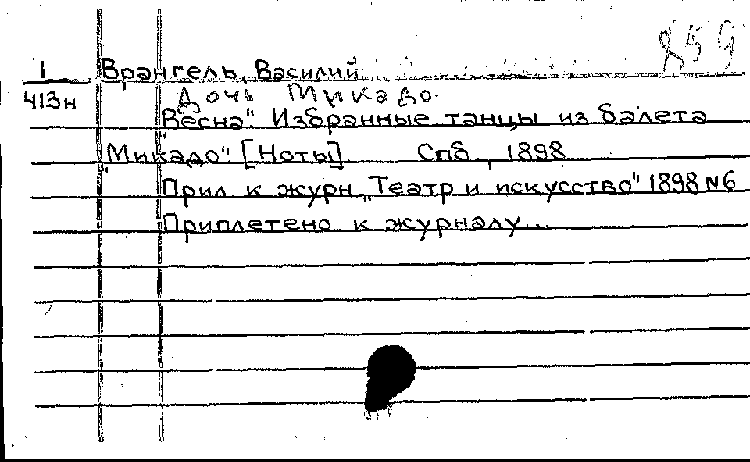 859
1 Врангель, Василий
413н Дочь Микадо.
"Весна". Избранные танцы из балета
"Микадо" [Ноты]. Спб, 1898
Прил к журн „Театр и искусство" 1898 N6
Приплетено к журналу...